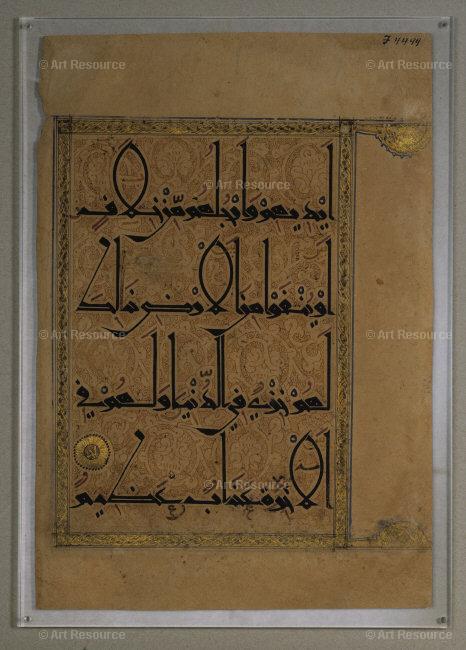 © Art Resource © Art Resource
ايديهم وارجلهم من خلاف
© Art Resource
او ينفوا من الارض ذلك
© Art Resource © Art Resource
لهم خزي في الدنيا ولهم في
© Art Resource
الاخرة عذاب عظيم
© Art Resource © Art Resource